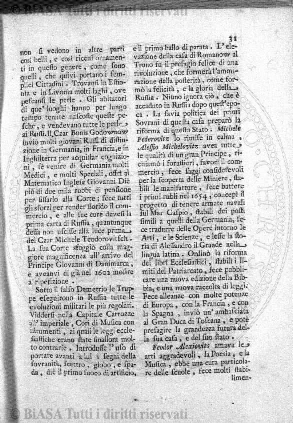 31
non si vedono in altre parti
così belli, e così ricchi ornamen-
ti in questo genere, come sono
quelli, che quivi portano i sem-
plici Cittadini. Trovansi in Esto-
nia e in Livonia molti laghi, ove
pescansi le perle. Gli abitatori
di que' luoghi hanno per lungo
tempo tenute nascoste queste pe-
sche, e vendevano tutte le perle
ai Russi. Il Czar Boris Godounow
inviò molti giovani Russi di distin-
zione in Germania, in Francia, e in
Inghilterra per acquistar cognizio-
ni, fè venire di Germania molti
Medici, e molti Speziali, offrì al
Matematico Inglese Giovanni Di
più di due mila rubli di pensione
per fissarlo alla Corte; fece tutti
gli sforzi per render florido il com-
mercio, e alle sue cure devesi la
prima carta di Russia, quantunque
dessa non uscisse alla luce prima
del Czar Michele Teodorovitsch.
La sua Corte sfoggiò colla mag-
giore magnificenza all' arrivo del
Principe Giovanni di Danimarca,
e avvenuti di già nel 1602 molto
a ripetizion.
Sotto il falso Demetrio le Trup-
pe eseguirono in Russia tutte le
evoluzioni militari le più regolari.
Viddersi nella Capitale Carrozze
all' imperiale, Cori di Musica con
istrumenti, di quali le leggi eccle-
siastiche erano state sinallora mol-
to contrarie. Introdusse l' uso di
portare avanti a lui i segni della
sovranità, scettro, globo, e spa-
da, diè il primo fuoco di artificio,
e il primo ballo di parata. L' ele-
vazione della casa di Romanow al
Trono fu il presagio felice di una
rivoluzione, che formerà l' ammi-
razione della posterità, come for-
mò la felicità, e la gloria della
Russia. Niuno ignora ciò, che è
accaduto in Russia dopo quest' epo-
ca. La savia politica dei primi
Sovrani di questa casa preparò la
riforma di questo Stato. Michele
Federovitz lo rimise in calma.
Alessio Michelovitz aveva tutte
le qualità di un gran Principe, fe
venire i forastieri, favorì il com-
mercio, fece saggi considerevoli
per la scoperta delle Miniere, sta-
bilì le manifatture, fece battere
i primi rubli nel 1654, concepì il
progetto di tenere armate navali
sul Mar Caspio, stabilì dei posti
simili a quelli della Germania, fe-
ce tradurre delle Opere intorno le
Arti, e le Scienze, e lesse la sto-
ria di Alessandro il Grande nella
lingua latina. Ordinò la riforma
dei libri Ecclesiastici, stabilì i li-
miti del Patriarcato, fece pubblica-
re una nuova edizione della Bib-
bia, e una nuova raccolta di leggi.
Fece alleanze con molte potenze
di Europa, con la Francia, e con
la Spagna, inviò un' ambasciata
al Gran Duca di Toscana, e potè
presagire la grandezza futura del-
la sua casa, e del suo stato.
Feodor Alexiovitz amava le
arti aggradevoli, la Poesia, e la
Musica, ebbe una cura particola-
re delle scuole, fece molti stabi-
limen-
© BIASA Tutti i diritti riservati